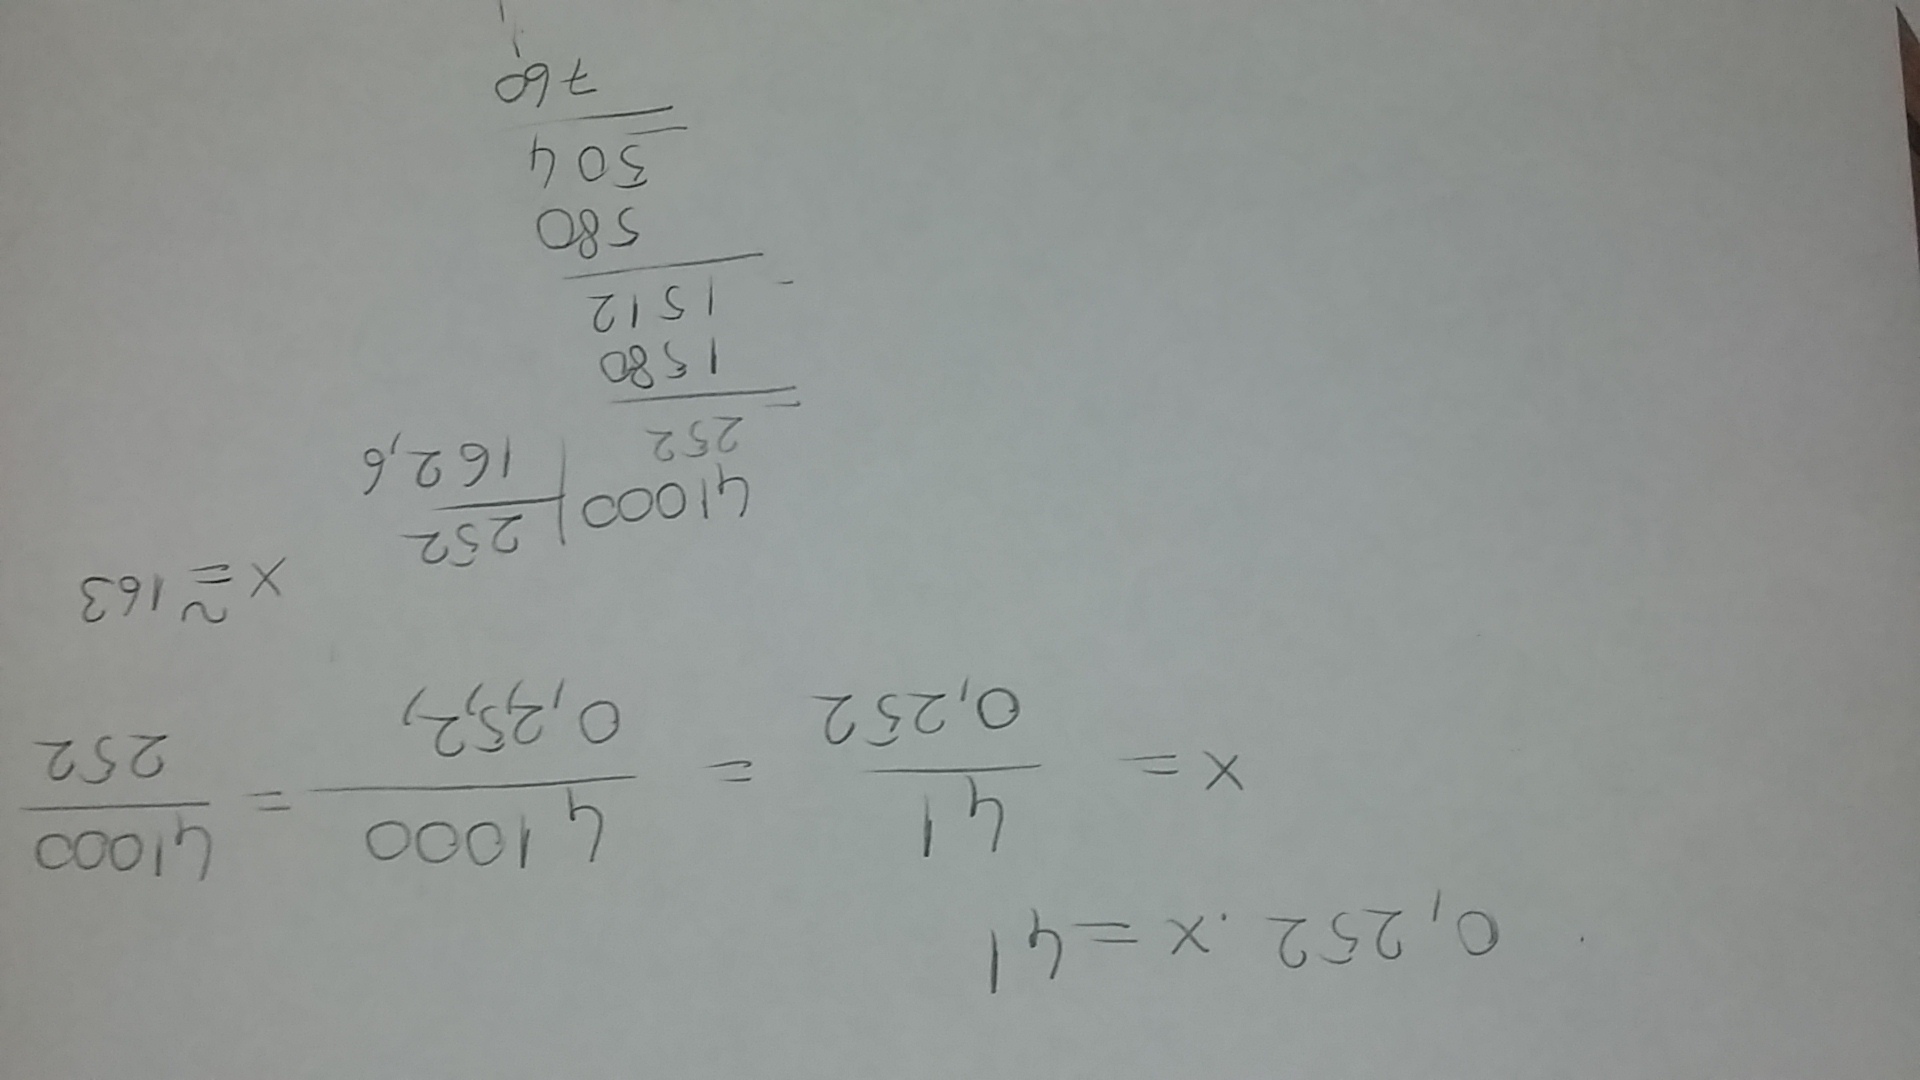 0,252 . x = 41
x = 41/0,252 = 41000/0,252,,, = 41000/252
x ≅ 163
41000 | 252
252 | 162,6
1580
- 1512
580
504
760